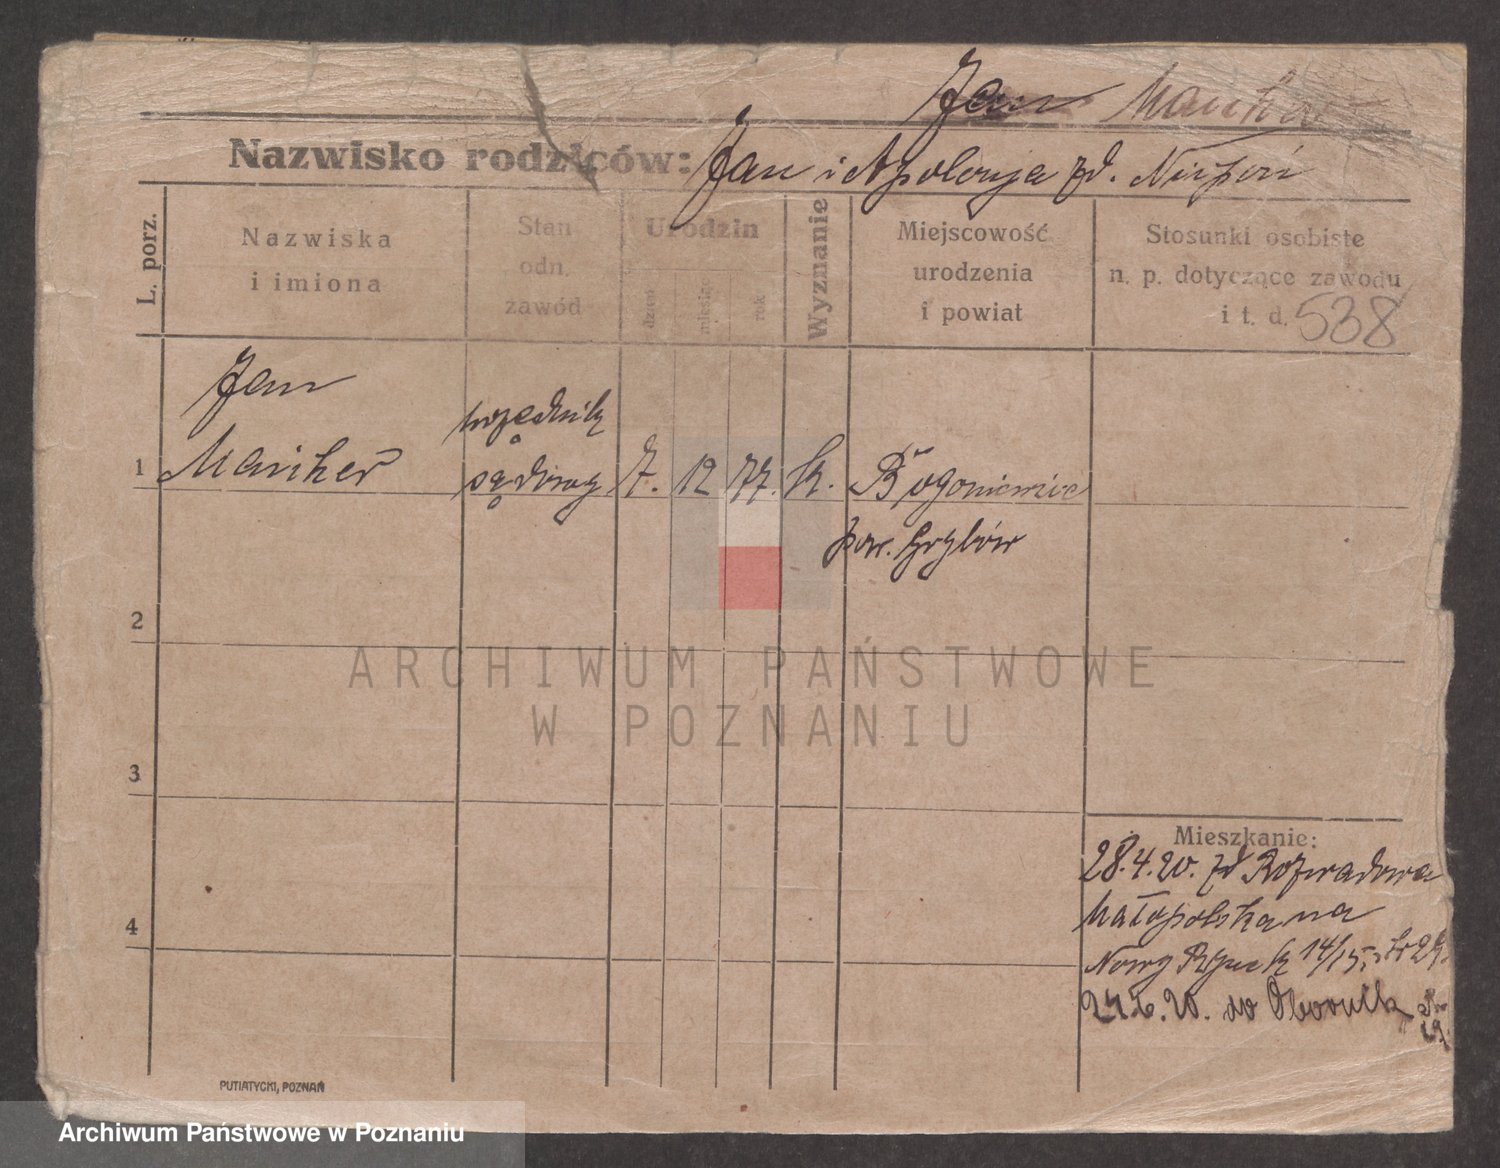 Jan
Nazwisko rodziców: Jan i Apolonja zd.
L. porz.
Nazwiska
i imiona
Stan
odn.
zawód
Urodzin
dzień
miesiąc
rok
Wyznanie
Miejscowość
urodzenia
i powiat
Stosunki osobiste
n. p. dotyczące zawodu
i t. d. 538
Jan
urzędnik
1 sądowy 7. 12 77. k.
pow. Grybów
2
ARCHIWUM PAŃSTWOWE
W POZNANIU
3
Mieszkanie:
28.4.20. zd Rozwadowa
Małopolska na
4
Nowy Rynek 14/15
24.6.20. do Obornik
PUTIATYCKI, POZNAŃ
Archiwum Państwowe w Poznaniu